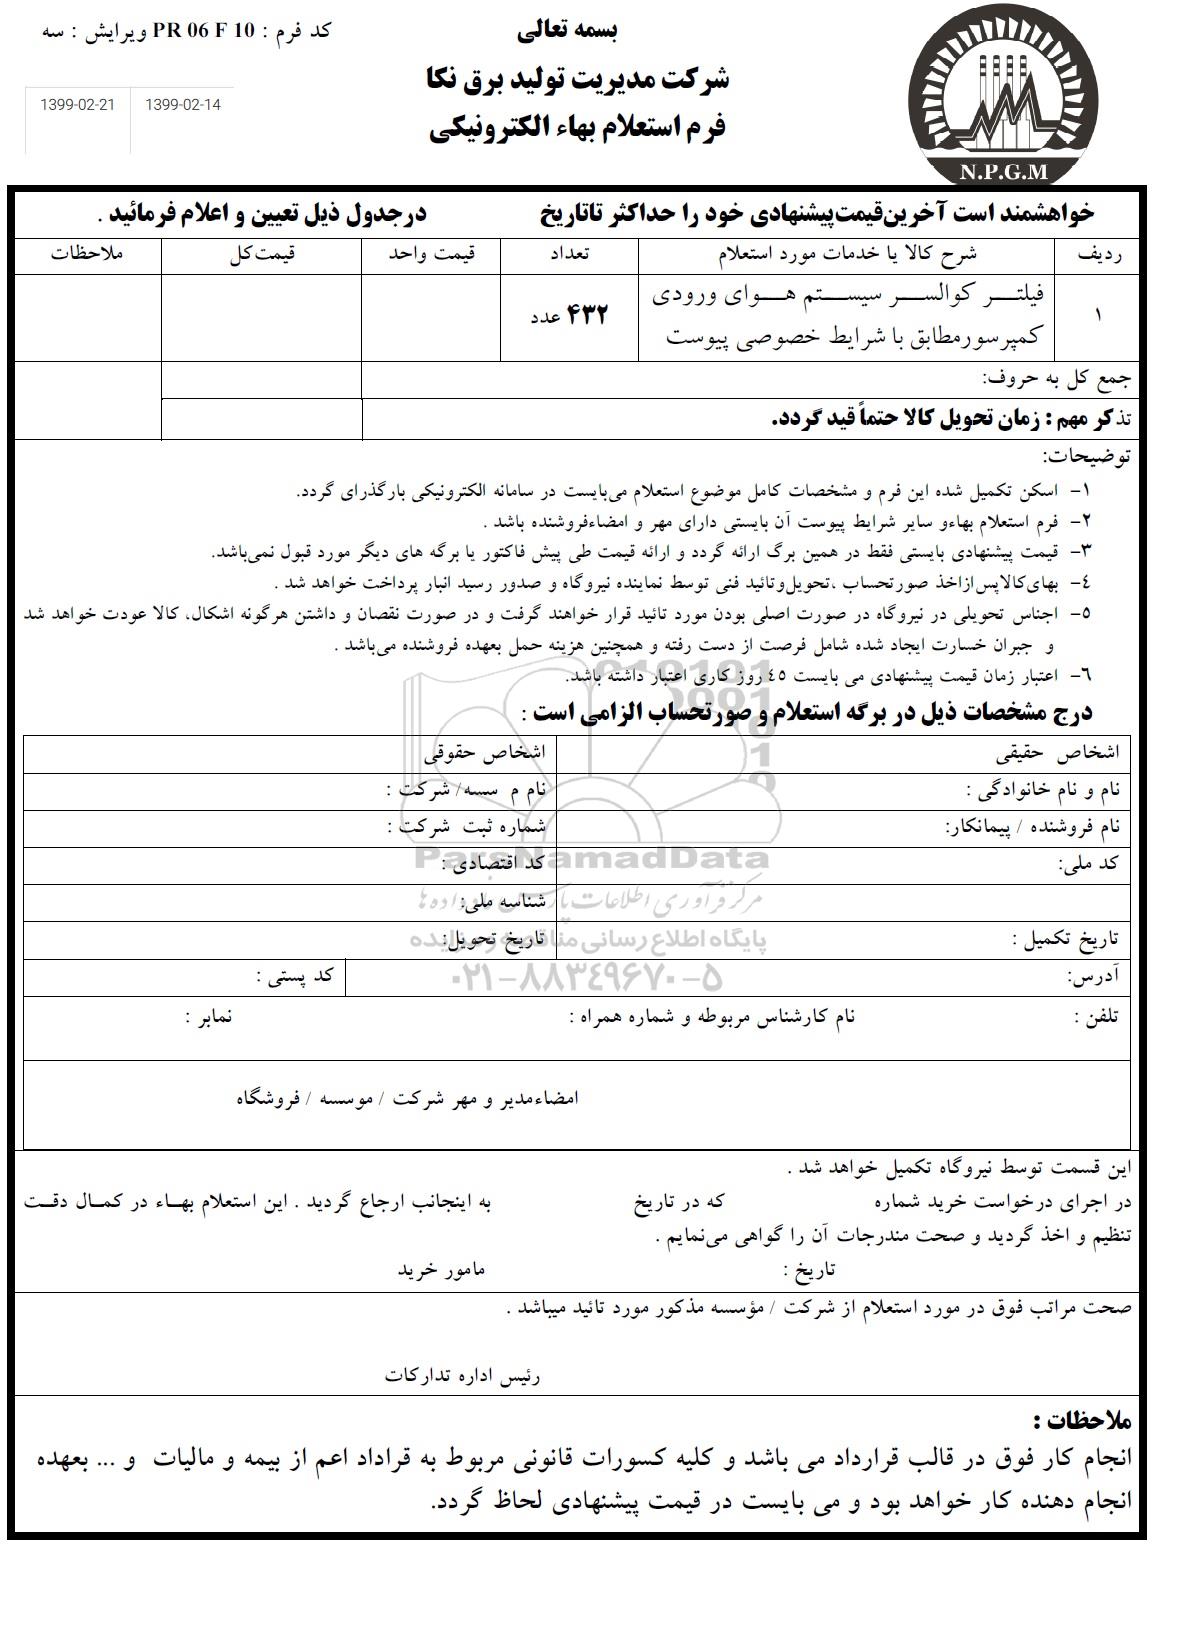 کد فرم : PR 06 F 10 ویرایش : سه
بسمه تعالی
شرکت مدیریت تولید برق نکا
فرم استعلام بهاء الکترونیکی
1399-02-21 1399-02-14
N.P.G.M
خواهشمند است آخرین‌قیمت‌پیشنهادی خود را حداکثر تاتاریخ درجدول ذیل تعیین و اعلام فرمائید .
ردیف شرح کالا یا خدمات مورد استعلام تعداد قیمت واحد قیمت‌کل ملاحظات
۱ فیلتر کوالسر سیستم هوای ورودی
کمپرسورمطابق با شرایط خصوصی پیوست ۴۳۲ عدد
جمع کل به حروف:
تذکر مهم : زمان تحویل کالا حتماً قید گردد.
توضیحات:
۱- اسکن تکمیل شده این فرم و مشخصات کامل موضوع استعلام می‌بایست در سامانه الکترونیکی بارگذرای گردد.
۲- فرم استعلام بهاءو سایر شرایط پیوست آن بایستی دارای مهر و امضاءفروشنده باشد .
۳- قیمت پیشنهادی بایستی فقط در همین برگ ارائه گردد و ارائه قیمت طی پیش فاکتور یا برگه های دیگر مورد قبول نمی‌باشد.
٤- بهای‌کالاپس‌ازاخذ صورتحساب ،تحویل‌وتائید فنی توسط نماینده نیروگاه و صدور رسید انبار پرداخت خواهد شد .
۵- اجناس تحویلی در نیروگاه در صورت اصلی بودن مورد تائید قرار خواهند گرفت و در صورت نقصان و داشتن هرگونه اشکال، کالا عودت خواهد شد
و جبران خسارت ایجاد شده شامل فرصت از دست رفته و همچنین هزینه حمل بعهده فروشنده می‌باشد .
٦- اعتبار زمان قیمت پیشنهادی می بایست ٤۵ روز کاری اعتبار داشته باشد.
درج مشخصات ذیل در برگه استعلام و صورتحساب الزامی است :
اشخاص حقیقی اشخاص حقوقی
نام و نام خانوادگی : نام م سسه/ شرکت :
نام فروشنده / پیمانکار: شماره ثبت شرکت :
ParsNamadData
کد ملی: کد اقتصادی :
شناسه ملی:
مرکز فرآوری اطلاعات پارس نماد داده ها
تاریخ تکمیل : تاریخ تحویل:
پایگاه اطلاع رسانی مناقصه و مزایده
آدرس: کد پستی :
۰۲۱-۸۸۳۴۹۶۷۰-۵
تلفن : نام کارشناس مربوطه و شماره همراه : نمابر :
امضاءمدیر و مهر شرکت / موسسه / فروشگاه
این قسمت توسط نیروگاه تکمیل خواهد شد .
در اجرای درخواست خرید شماره که در تاریخ به اینجانب ارجاع گردید . این استعلام بهاء در کمال دقت
تنظیم و اخذ گردید و صحت مندرجات آن را گواهی می‌نمایم .
تاریخ : مامور خرید
صحت مراتب فوق در مورد استعلام از شرکت / مؤسسه مذکور مورد تائید میباشد .
رئیس اداره تدارکات
ملاحظات :
انجام کار فوق در قالب قرارداد می باشد و کلیه کسورات قانونی مربوط به قراداد اعم از بیمه و مالیات و ... بعهده
انجام دهنده کار خواهد بود و می بایست در قیمت پیشنهادی لحاظ گردد.